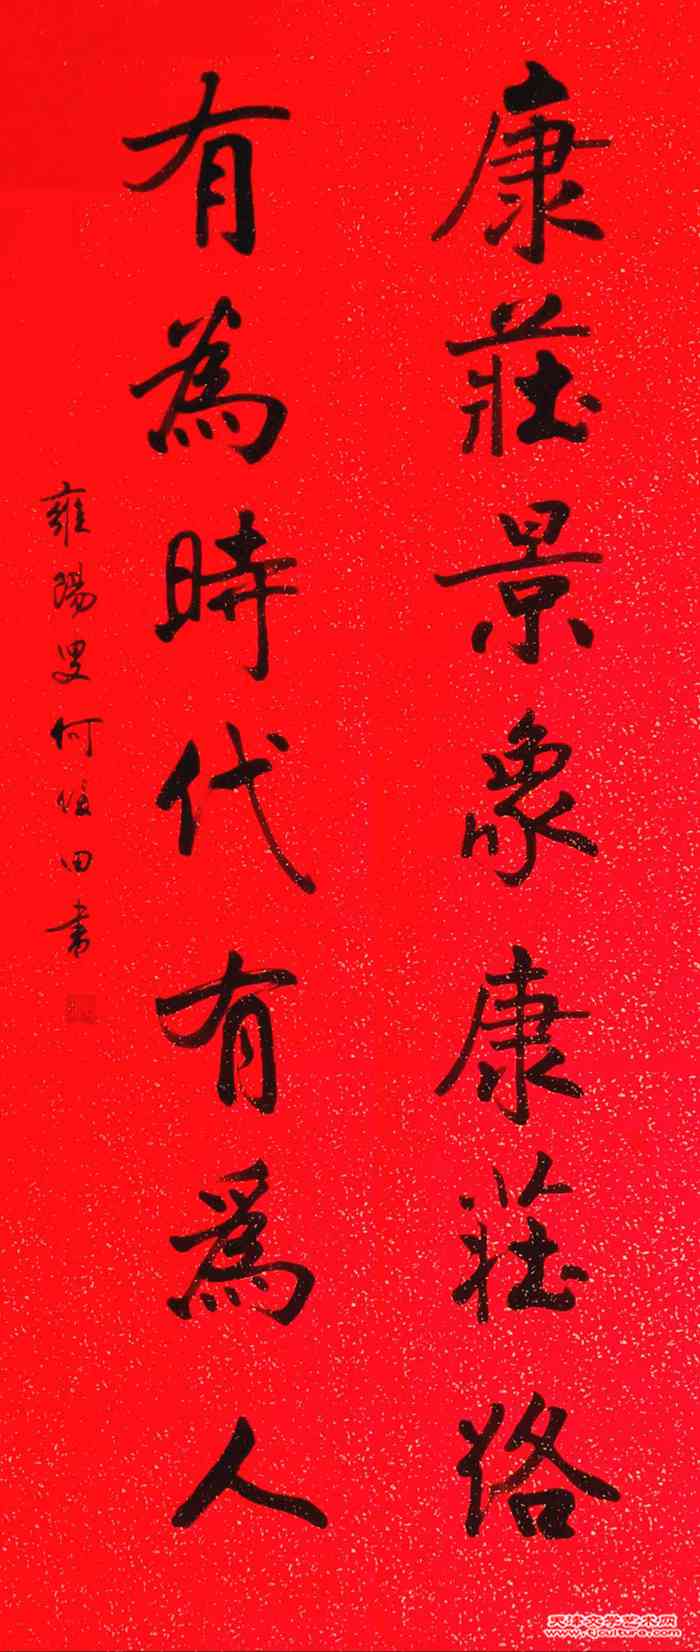 康莊景象康莊路
有為時代有為人
雍陽叟何俊田書
天津文学艺术网
www.tjculture.com